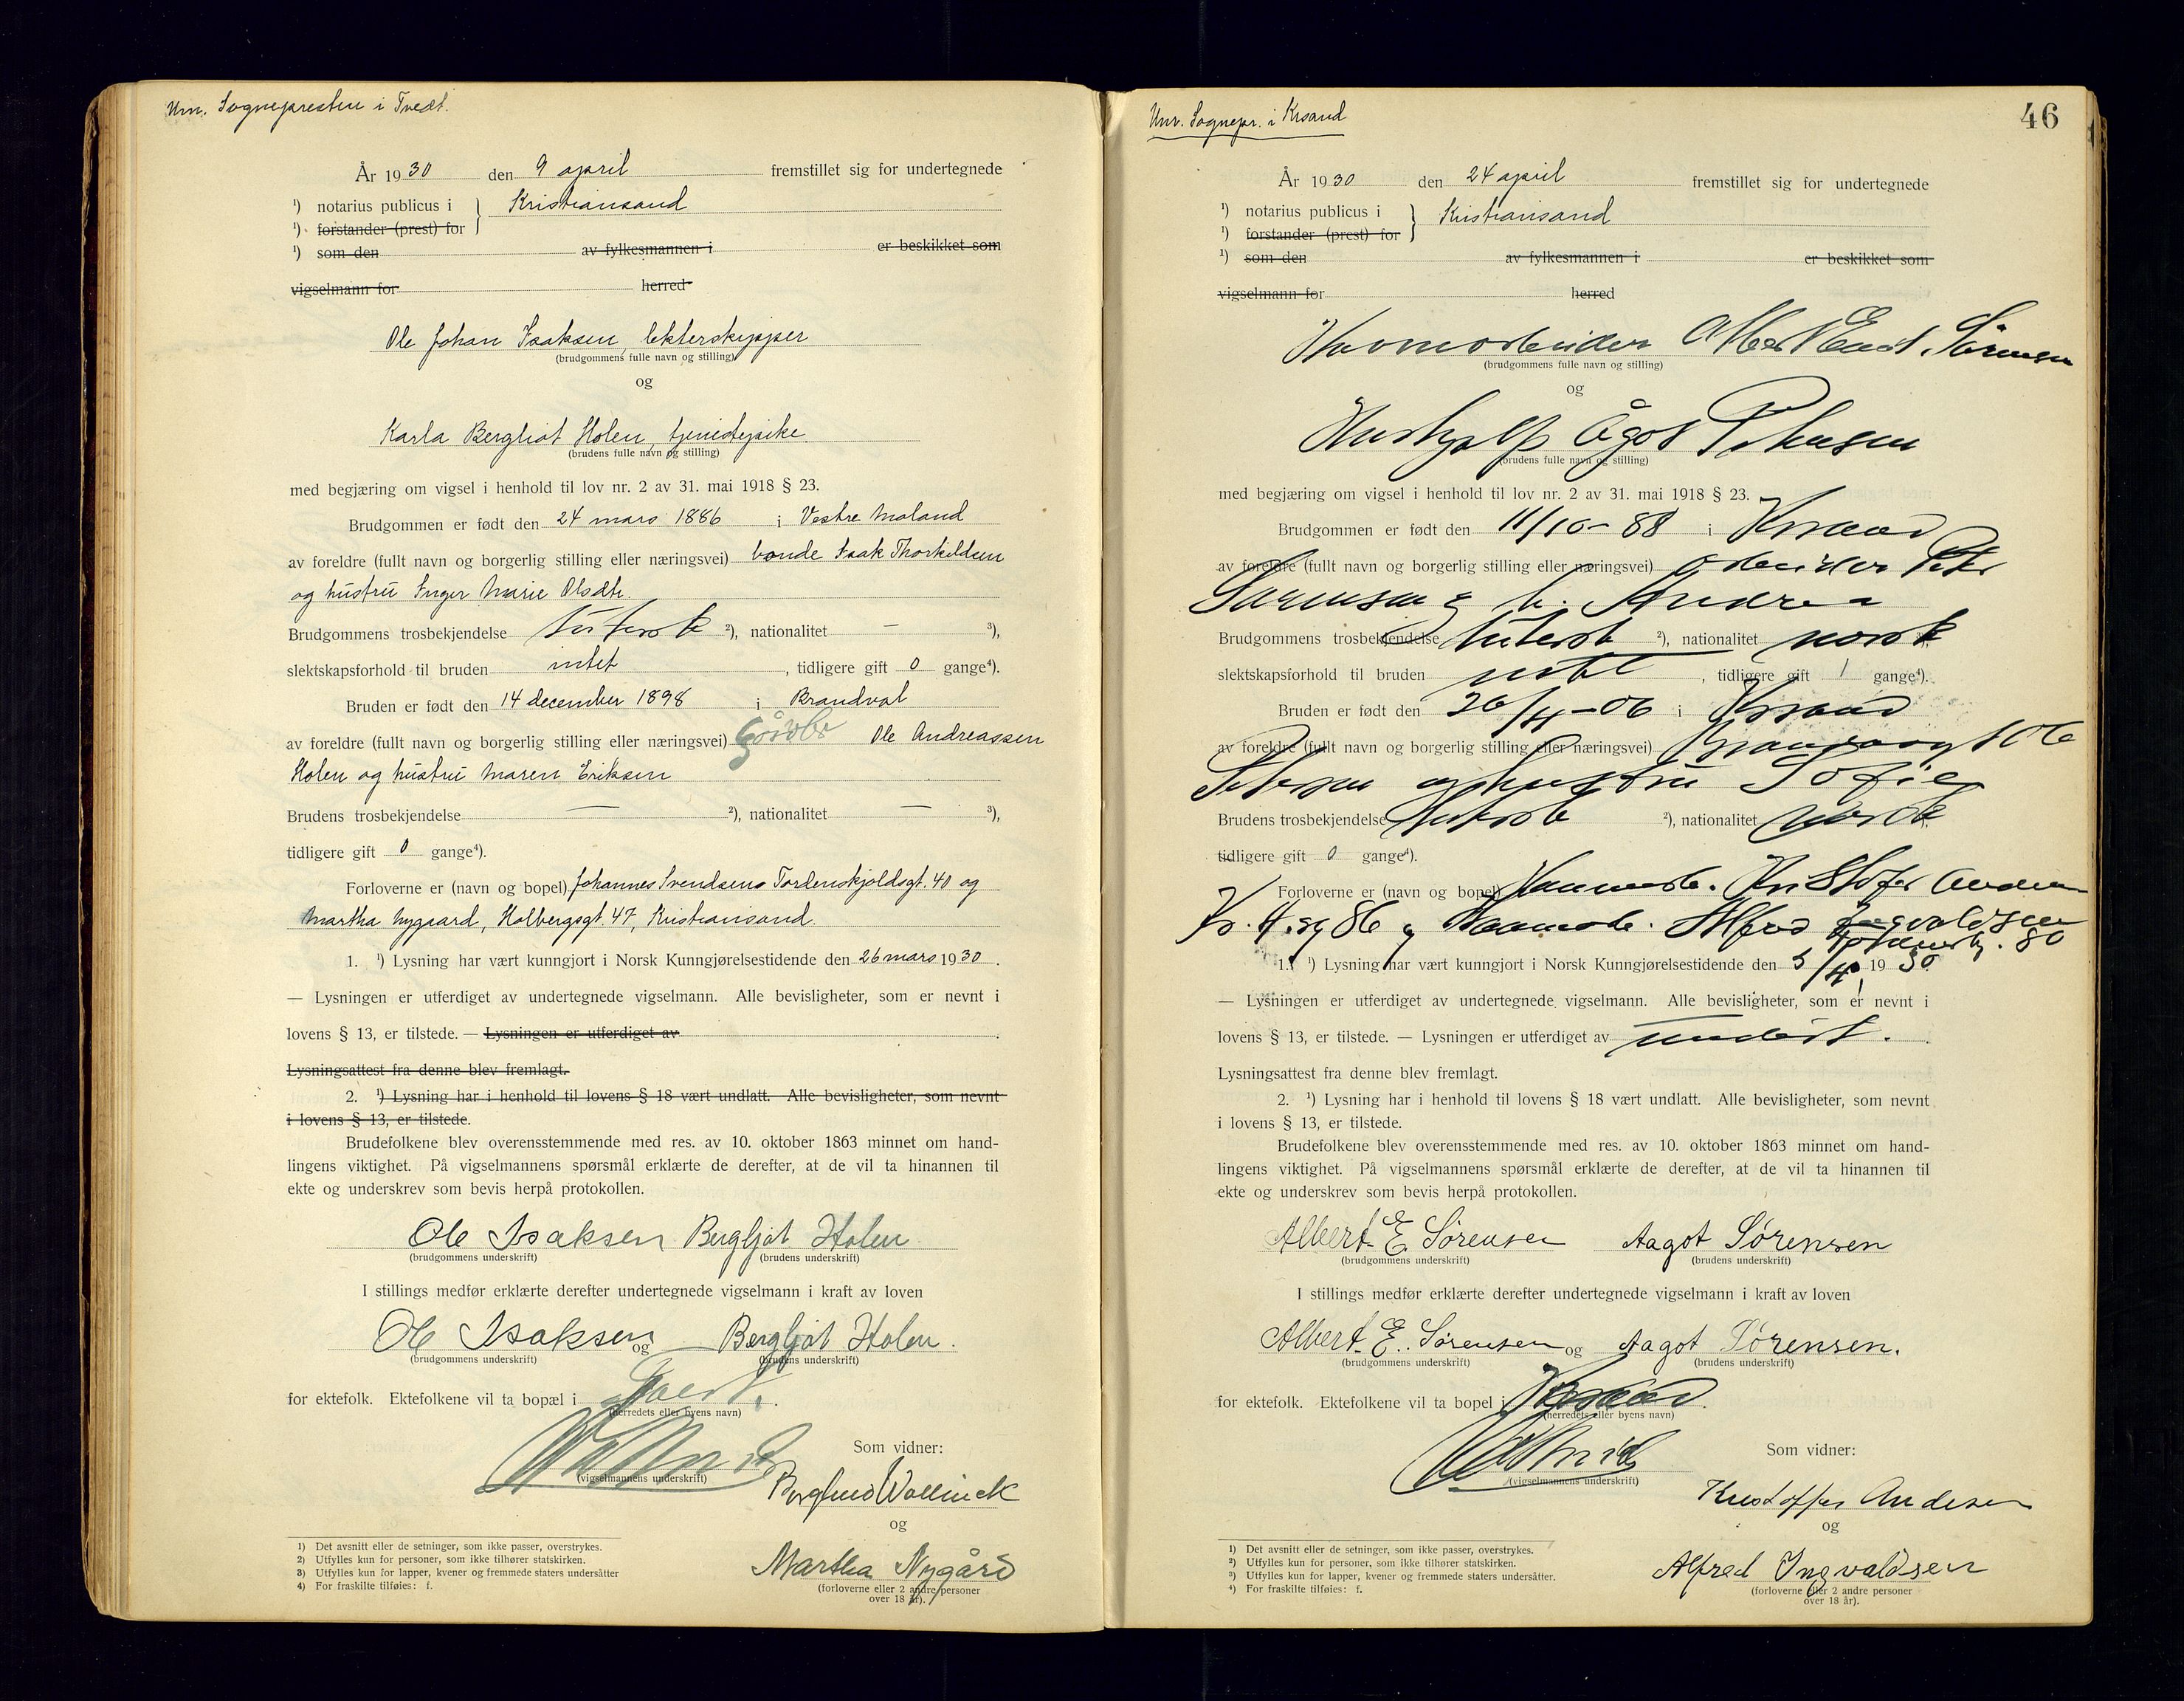 Um. Sognepresten i Tvedt.
År 1930 den 9 april fremstillet sig for undertegnede
¹) notarius publicus i } Kristiansand
¹) forstander (prest) for
¹) som den av fylkesmannen i er beskikket som
vigselmann for herred
Ole Johan Isaksen, lekterskipper
(brudgommens fulle navn og stilling)
og
Karla Bergliot Holen, tjenestepike
(brudens fulle navn og stilling)
med begjæring om vigsel i henhold til lov nr. 2 av 31. mai 1918 § 23.
Brudgommen er født den 24 mars 1886 i Vestre Moland
av foreldre (fullt navn og borgerlig stilling eller næringsvei) bonde Isak Thorkildsen
og hustru Inger Marie Olsdtr.
Brudgommens trosbekjendelse luthersk ²), nationalitet — ³),
slektskapsforhold til bruden intet, tidligere gift 0 gange⁴).
Bruden er født den 14 december 1898 i Brandval
av foreldre (fullt navn og borgerlig stilling eller næringsvei) Ole Andreassen
Holen og hustru Maren Eriksen
Brudens trosbekjendelse — ²), nationalitet — ³),
tidligere gift 0 gange⁴).
Forloverne er (navn og bopel) Johannes Svendsens Tordenskjoldsgt. 40 og
Martha Nygaard, Holbergsgt. 47, Kristiansand.
1. ¹) Lysning har vært kunngjort i Norsk Kunngjørelsestidende den 26 mars 1930.
— Lysningen er utferdiget av undertegnede vigselmann. Alle bevisligheter, som er nevnt i
lovens § 13, er tilstede. — Lysningen er utferdiget av .
Lysningsattest fra denne blev fremlagt.
2. ¹) Lysning har i henhold til lovens § 18 vært undlatt. Alle bevisligheter, som nevnt
i lovens § 13, er tilstede.
Brudefolkene blev overensstemmende med res. av 10. oktober 1863 minnet om hand-
lingens viktighet. På vigselmannens spørsmål erklærte de derefter, at de vil ta hinannen til
ekte og underskrev som bevis herpå protokollen.
Ole Isaksen Bergljot Holen
(brudgommens underskrift) (brudens underskrift)
I stillings medfør erklærte derefter undertegnede vigselmann i kraft av loven
Ole Isaksen og Bergljot Holen.
(brudgommens underskrift) (brudens underskrift)
for ektefolk. Ektefolkene vil ta bopæl i Tveit.
(herredets eller byens navn)
Som vidner:
(vigselmannens underskrift)
og
Martha Nygård
(forloverne eller 2 andre personer
over 18 år).
1) Det avsnitt eller de setninger, som ikke passer, overstrykes.
2) Utfylles kun for personer, som ikke tilhører statskirken.
3) Utfylles kun for lapper, kvener og fremmede staters undersåtter
4) For fraskilte tilføies: f.
46
Unr. Sognepr. i Krsand
År 1930 den 24 april fremstillet sig for undertegnede
¹) notarius publicus i } Kristiansand
¹) forstander (prest) for
¹) som den av fylkesmannen i er beskikket som
vigselmann for herred
Havnearbeider Albert Emil Sørensen
(brudgommens fulle navn og stilling)
og
Hushjelp Ågot Petersen
(brudens fulle navn og stilling)
med begjæring om vigsel i henhold til lov nr. 2 av 31. mai 1918 § 23.
Brudgommen er født den 11/10-88 i Krsand
av foreldre (fullt navn og borgerlig stilling eller næringsvei) arbeider Peter
Sørensen & h. Andrea
Brudgommens trosbekjendelse luthersk ²), nationalitet norsk
slektskapsforhold til bruden intet, tidligere gift 1 gange⁴).
Bruden er født den 26/4-06 i Krsand
av foreldre (fullt navn og borgerlig stilling eller næringsvei)
Petersen og hustru Sofie
Brudens trosbekjendelse luthersk ²), nationalitet norsk
tidligere gift 0 gange⁴).
Forloverne er (navn og bopel) Havnearb. Kristofer Andersen
Kr. 4. sg 86 & Havnearb. Alfred Ingvaldsen
80
1. ¹) Lysning har vært kunngjort i Norsk Kunngjørelsestidende den 5/4 1930
— Lysningen er utferdiget av undertegnede vigselmann. Alle bevisligheter, som er nevnt i
lovens § 13, er tilstede. — Lysningen er utferdiget av undert.
Lysningsattest fra denne blev fremlagt.
2. ¹) Lysning har i henhold til lovens § 18 vært undlatt. Alle bevisligheter, som nevnt
i lovens § 13, er tilstede.
Brudefolkene blev overensstemmende med res. av 10. oktober 1863 minnet om hand-
lingens viktighet. På vigselmannens spørsmål erklærte de derefter, at de vil ta hinannen til
ekte og underskrev som bevis herpå protokollen.
Albert E. Sørensen Aagot Sørensen
(brudgommens underskrift) (brudens underskrift)
I stillings medfør erklærte derefter undertegnede vigselmann i kraft av loven
Albert E. Sørensen og Aagot Sørensen.
(brudgommens underskrift) (brudens underskrift)
for ektefolk. Ektefolkene vil ta bopel i Krsand.
(herredets eller byens navn)
Som vidner:
(vigselmannens underskrift)
Kristoffer Andersen
og
Alfred Ingvaldsen
(forloverne eller 2 andre personer
over 18 år).
¹) Det avsnitt eller de setninger, som ikke passer, overstrykes.
²) Utfylles kun for personer, som ikke tilhører statskirken.
³) Utfylles kun for lapper, kvener og fremmede staters undersåtter.
⁴) For fraskilte tilføies: f.